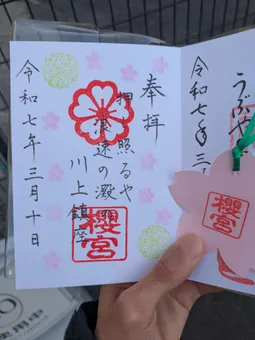 うぶや
令和七年三
櫻宮
奉拝
押照るや
浪速の澱
川上鎮座
櫻宮
令和七年三月十日